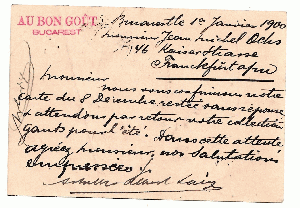 AU BON GOÛT
BUCAREST
Bucarest 1er Janvier 1900
Monsieur Jean Michel Ochs
46 Kaiserstrasse
Franckfürt a/m
Monsieur
nous vous confirmons notre
carte du 8 Décembre restée sans réponse
& attendons par retour votre collection
gants pour l'été. Dans cette attente
agréez, monsieur, nos salutations
empressées